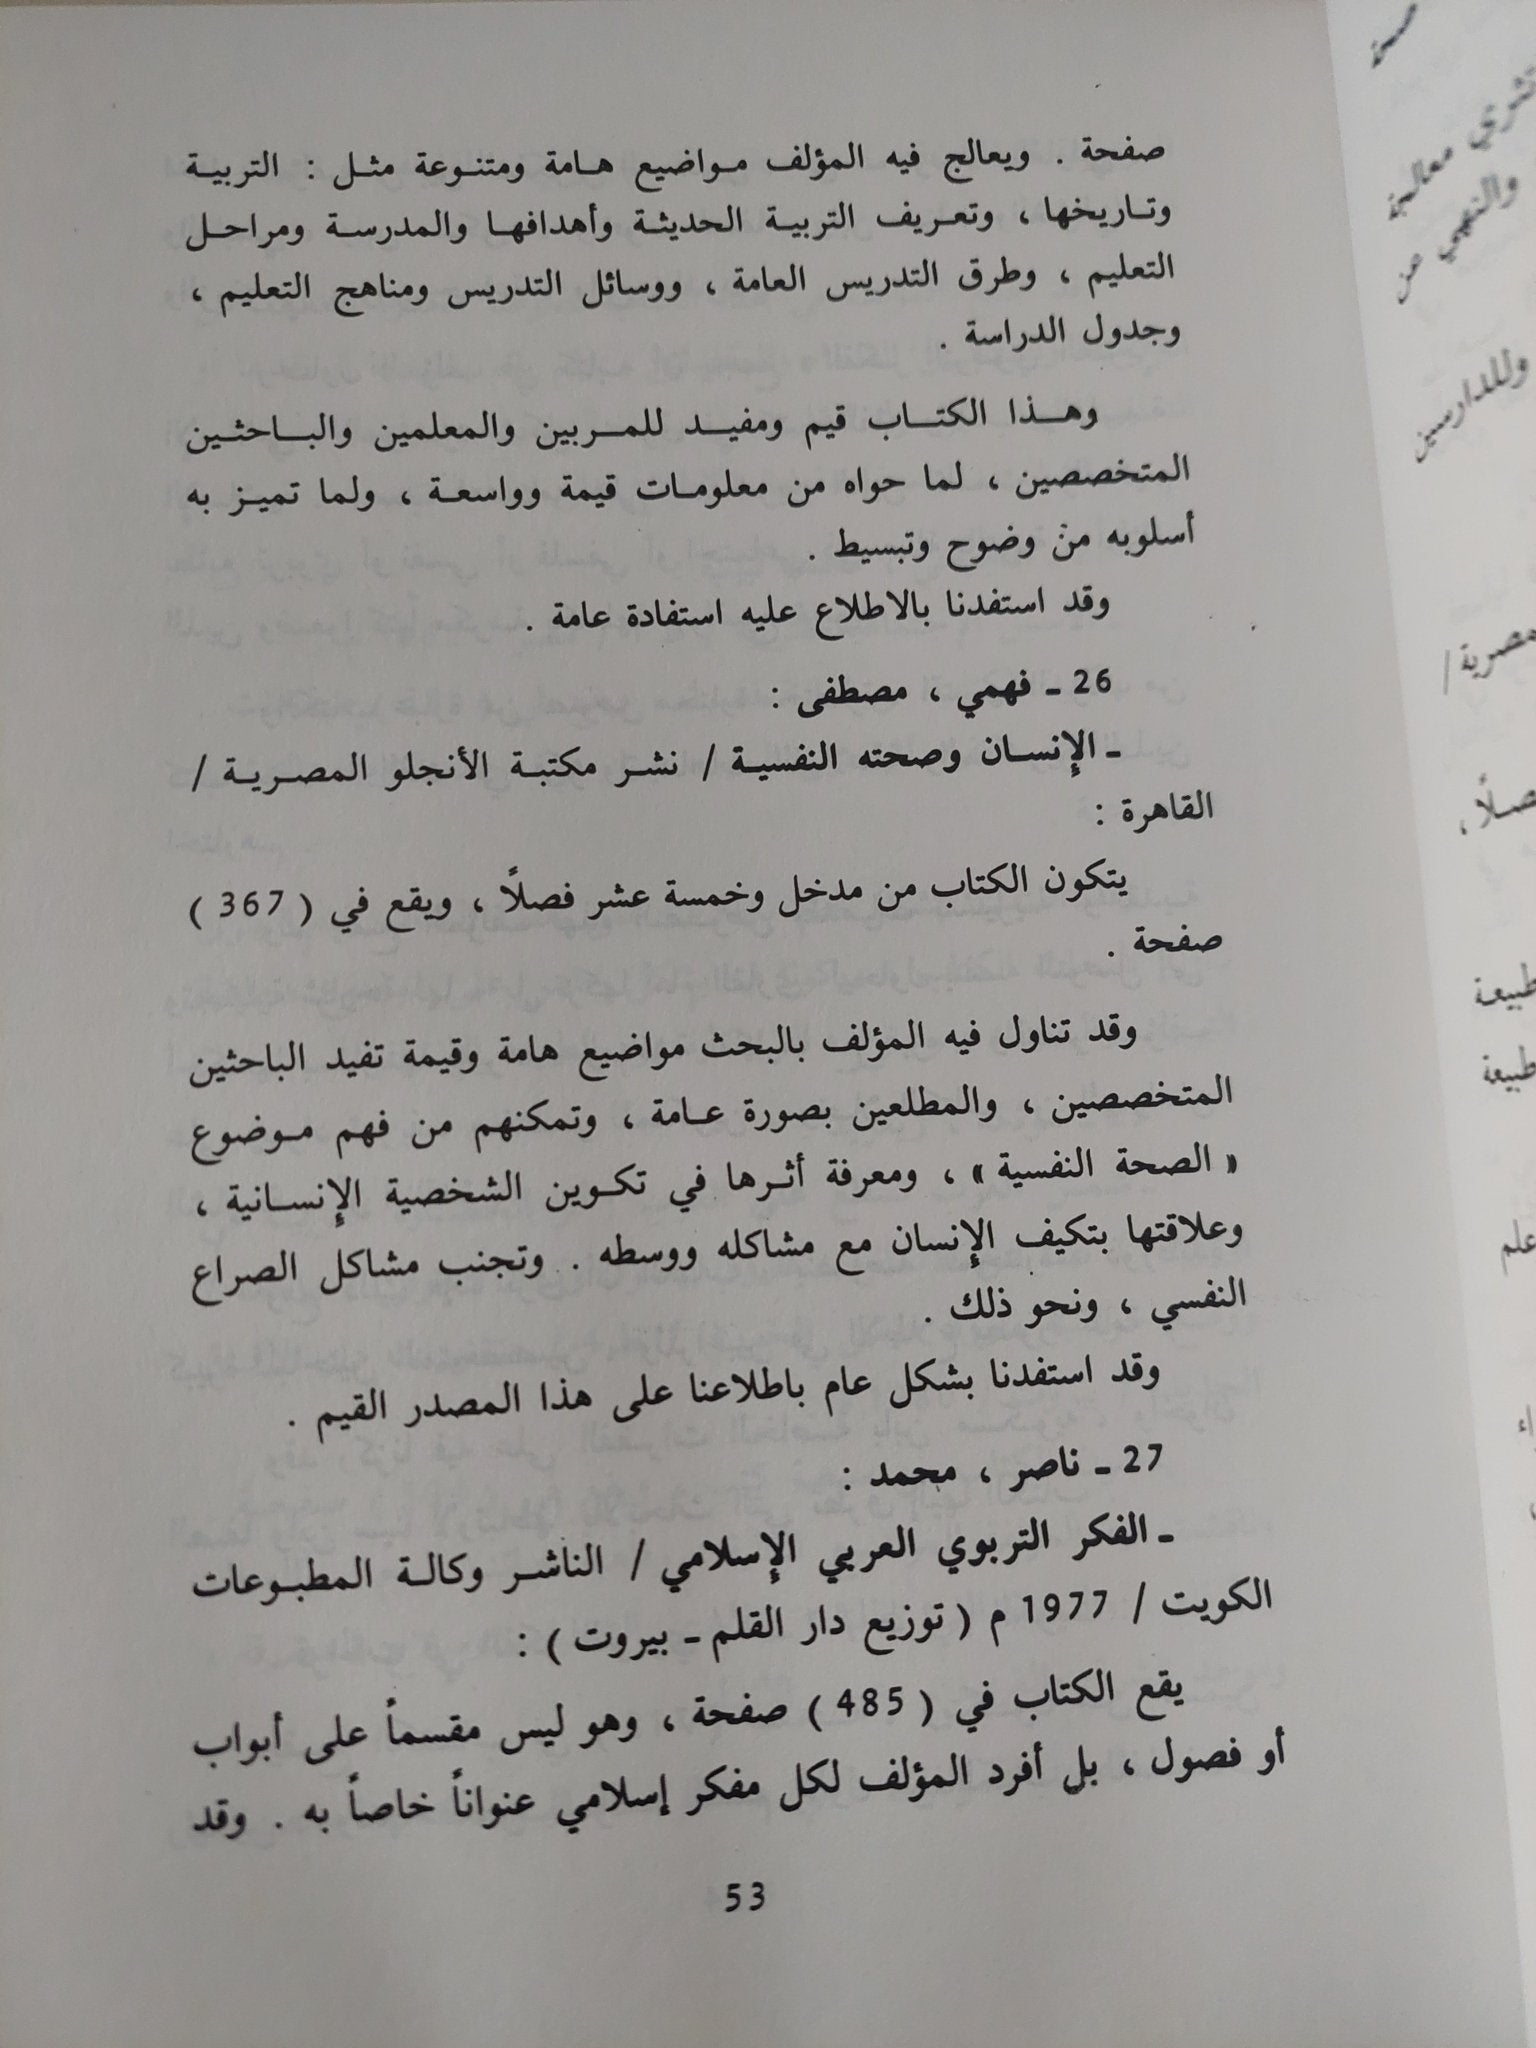 صفحة . ويعالج فيه المؤلف مواضيع هامة ومتنوعة مثل : التربية
وتاريخها ، وتعريف التربية الحديثة وأهدافها والمدرسة ومراحل
التعليم ، وطرق التدريس العامة ، ووسائل التدريس ومناهج التعليم ،
وجدول الدراسة .
وهذا الكتاب قيم ومفيد للمربين والمعلمين والباحثين
المتخصصين ، لما حواه من معلومات قيمة وواسعة ، ولما تميز به
أسلوبه من وضوح وتبسيط .
وقد استفدنا بالاطلاع عليه استفادة عامة .
26 ـ فهمي ، مصطفى :
ـ الإنسان وصحته النفسية / نشر مكتبة الأنجلو المصرية /
القاهرة :
يتكون الكتاب من مدخل وخمسة عشر فصلًا ، ويقع في ( 367 )
صفحة .
وقد تناول فيه المؤلف بالبحث مواضيع هامة وقيمة تفيد الباحثين
المتخصصين ، والمطلعين بصورة عامة ، وتمكنهم من فهم موضوع
« الصحة النفسية » ، ومعرفة أثرها في تكوين الشخصية الإنسانية ،
وعلاقتها بتكيف الإنسان مع مشاكله ووسطه . وتجنب مشاكل الصراع
النفسي ، ونحو ذلك .
وقد استفدنا بشكل عام باطلاعنا على هذا المصدر القيم .
27 ـ ناصر ، محمد :
ـ الفكر التربوي العربي الإسلامي / الناشر وكالة المطبوعات
الكويت / 1977 م ( توزيع دار القلم ـ بيروت ) :
يقع الكتاب في ( 485 ) صفحة ، وهو ليس مقسماً على أبواب
أو فصول ، بل أفرد المؤلف لكل مفكر إسلامي عنواناً خاصاً به . وقد
53
معالجة
والنهي عن
وللدارسين
طبيعة
طبيعة